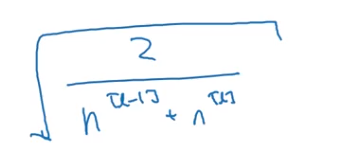 √(2 / (n^[l-1] + n^[l]))